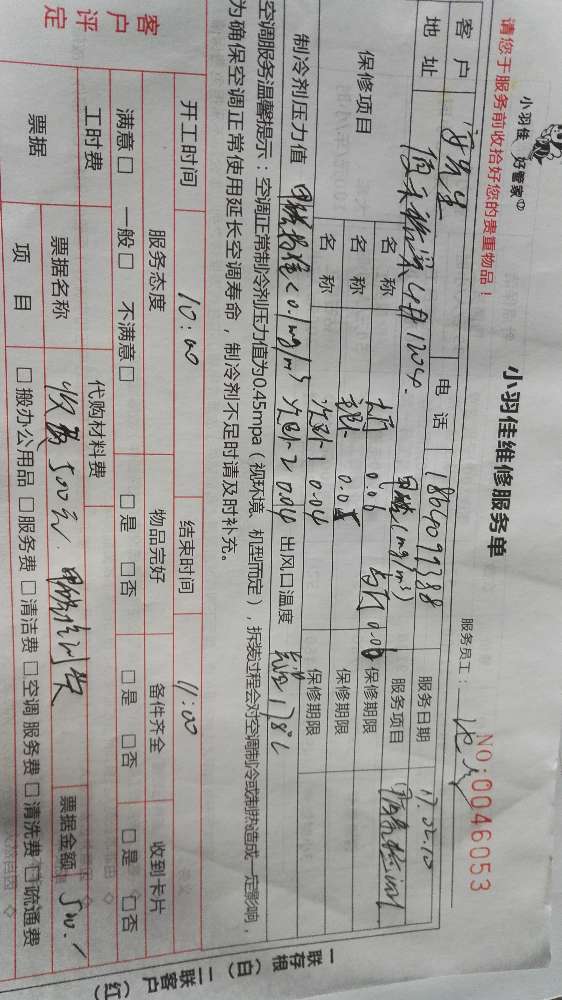 小羽佳 好管家
请您于服务前收拾好您的贵重物品！
小羽佳维修服务单
NO：0046053
服务员工：
客户 电话 服务日期 17.05.10
地址 服务项目
保修项目 名称 大厅 0.06 保修期限
名称 0.0 保修期限
名称 次卧1 0.04 保修期限
甲醛(mg/m³)
制冷剂压力值 甲醛标准<0.1mg/m³ 次卧2 0.04 出风口温度
空调服务温馨提示：空调正常制冷剂压力值为0.45mpa（视环境、机型而定），拆装过程会对空调制冷或制热造成一定影响，
为确保空调正常使用延长空调寿命，制冷剂不足时请及时补充。
开工时间 10:00 结束时间 11:00
客户评定 服务态度 物品完好 备件齐全 收到卡片
满意□ 一般□ 不满意□ □是 □否 □是 □否 □是 □否
工时费 代购材料费
票据 票据名称 收费500元. 甲醛检测费 票据金额 500.
项目 □搬办公用品 □服务费 □清洁费 □空调服务费 □清洗费 □疏通费
一联存根（白）二联客户（红）